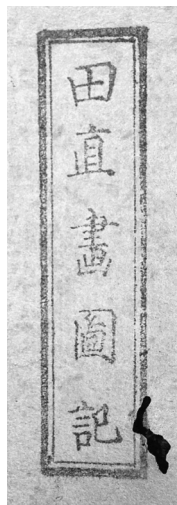 田直畵圖記